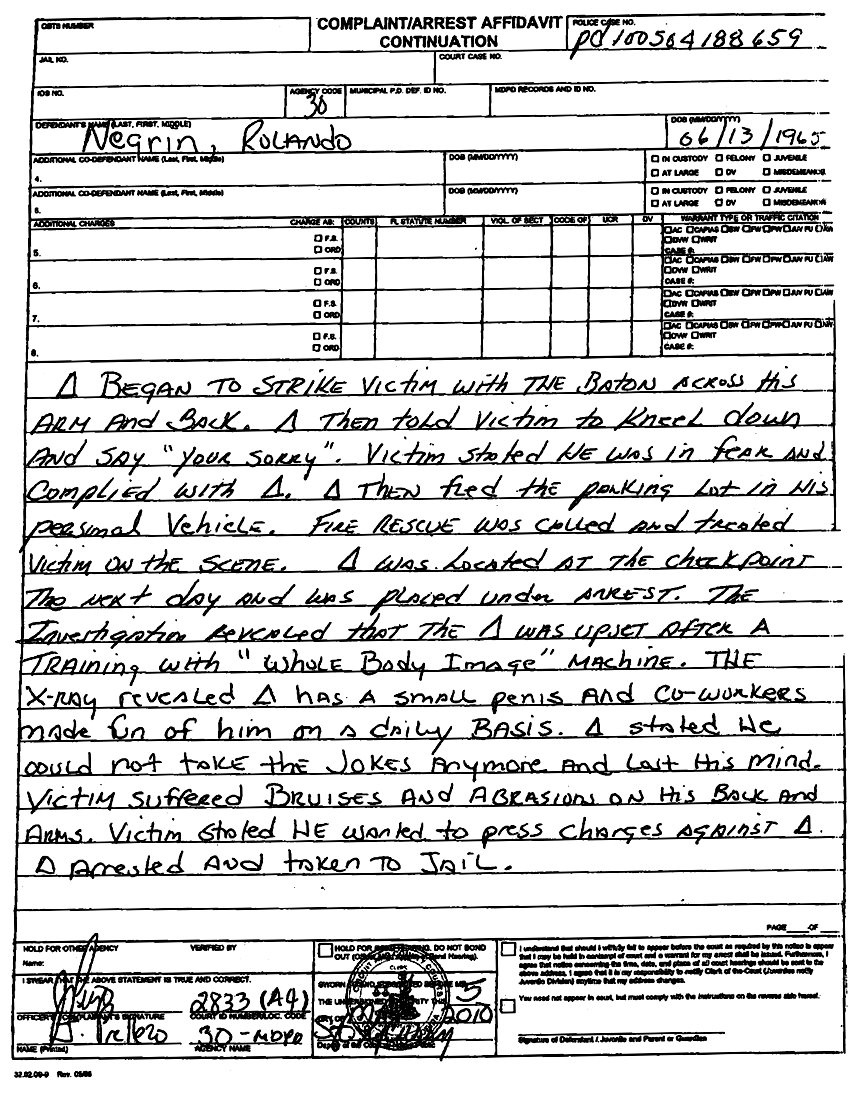 OBTS NUMBER
COMPLAINT/ARREST AFFIDAVIT
CONTINUATION
POLICE CASE NO.
PD100504188659
JAIL NO.
COURT CASE NO.
IDS NO.
AGENCY CODE
30
MUNICIPAL P.D. DEF. ID NO.
MDPD RECORDS AND ID NO.
DEFENDANT'S NAME (LAST, FIRST, MIDDLE)
Negrin, ROLANDO
DOB (MM/DD/YYYY)
06/13/1965
ADDITIONAL CO-DEFENDANT NAME (Last, First, Middle)
4.
DOB (MM/DD/YYYY)
☐ IN CUSTODY ☐ FELONY ☐ JUVENILE
☐ AT LARGE ☐ DV ☐ MISDEMEANOR
ADDITIONAL CO-DEFENDANT NAME (Last, First, Middle)
DOB (MM/DD/YYYY)
☐ IN CUSTODY ☐ FELONY ☐ JUVENILE
☐ AT LARGE ☐ DV ☐ MISDEMEANOR
ADDITIONAL CHARGES
CHARGE AS:
COUNTS
FL STATUTE NUMBER
VIOL. OF SECT
CODE OF
UCR
DV
WARRANT TYPE OR TRAFFIC CITATION
5.
☐ F.S.
☐ ORD
☐AC ☐CAPIAS ☐BW ☐FW ☐PW ☐JUV PU ☐AW
☐DVW ☐WRIT
CASE #:
6.
☐ F.S.
☐ ORD
☐AC ☐CAPIAS ☐BW ☐FW ☐PW ☐JUV PU ☐AW
☐DVW ☐WRIT
CASE #:
7.
☐ F.S.
☐ ORD
☐AC ☐CAPIAS ☐BW ☐FW ☐PW ☐JUV PU ☐AW
☐DVW ☐WRIT
CASE #:
8.
☐ F.S.
☐ ORD
☐AC ☐CAPIAS ☐BW ☐FW ☐PW ☐JUV PU ☐AW
☐DVW ☐WRIT
CASE #:
Δ BEGAN TO STRIKE VICTIM WITH THE BATON ACROSS His
ARM And BACK. Δ Then told Victim to Kneel down
AND SAY "YOUR SORRY". Victim stated HE WAS in fear AND
Complied with Δ. Δ THEN fled the parking Lot in His
personal Vehicle. FIRE RESCUE WAS called and treated
Victim ON the SCENE. Δ WAS Located AT the checkpoint
The next day and WAS placed under ARREST. THE
Investigation REVEALED that THE Δ WAS UPSET AFTER A
TRAINING with "Whole Body Image" MACHINE. THE
X-RAY revealed Δ has A small penis AND CO-WORKERS
made fun of him on a daily BASIS. Δ stated He
could not take the JOKES Anymore and Lost His mind.
VICTIM SUFFERED BRUISES AND ABRASION ON His BACK And
ARMS. Victim stated HE wanted to press charges against Δ.
Δ Arrested And taken TO JAIL.
PAGE____OF____
HOLD FOR OTHER AGENCY
Name:
VERIFIED BY
I SWEAR THAT THE ABOVE STATEMENT IS TRUE AND CORRECT.
2833 (A4)
OFFICER'S/COMPLAINANT'S SIGNATURE
COURT ID NUMBER/LOC. CODE
30-MDPD
NAME (Printed)
AGENCY NAME
☐ HOLD FOR BOND HEARING. DO NOT BOND
5
2010
☐ I understand that should I willfully fail to appear before the court as required by this notice to appear
that I may be held in contempt of court and a warrant for my arrest shall be issued. Furthermore, I
agree that notice concerning the time, date, and place of all court hearings should be sent to the
above address. I agree that it is my responsibility to notify Clerk of the Court (Juveniles notify
Juvenile Division) anytime that my address changes.
☐ You need not appear in court, but must comply with the instructions on the reverse side hereof.
Signature of Defendant / Juvenile and Parent or Guardian
32.02.09-9 Rev. 05/06